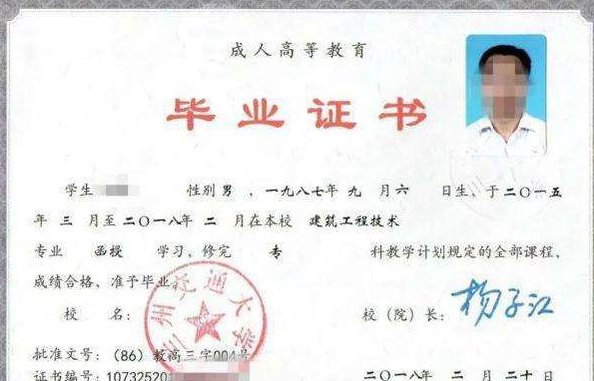 成人高等教育
毕业证书
学生 性别 男 、一九八七年 九 月 六 日生、于二〇一五
年 三 月至 二〇一八年 二 月在本校 建筑工程技术
专业 函授 学习、修完 专 科教学计划规定的全部课程,
成绩合格、准予毕业。
校 名: 兰州交通大学 校(院)长: 杨子江
批准文号: (86) 教高三字004号
证书编号: 10732520 二〇一八年 二 月 二十 日